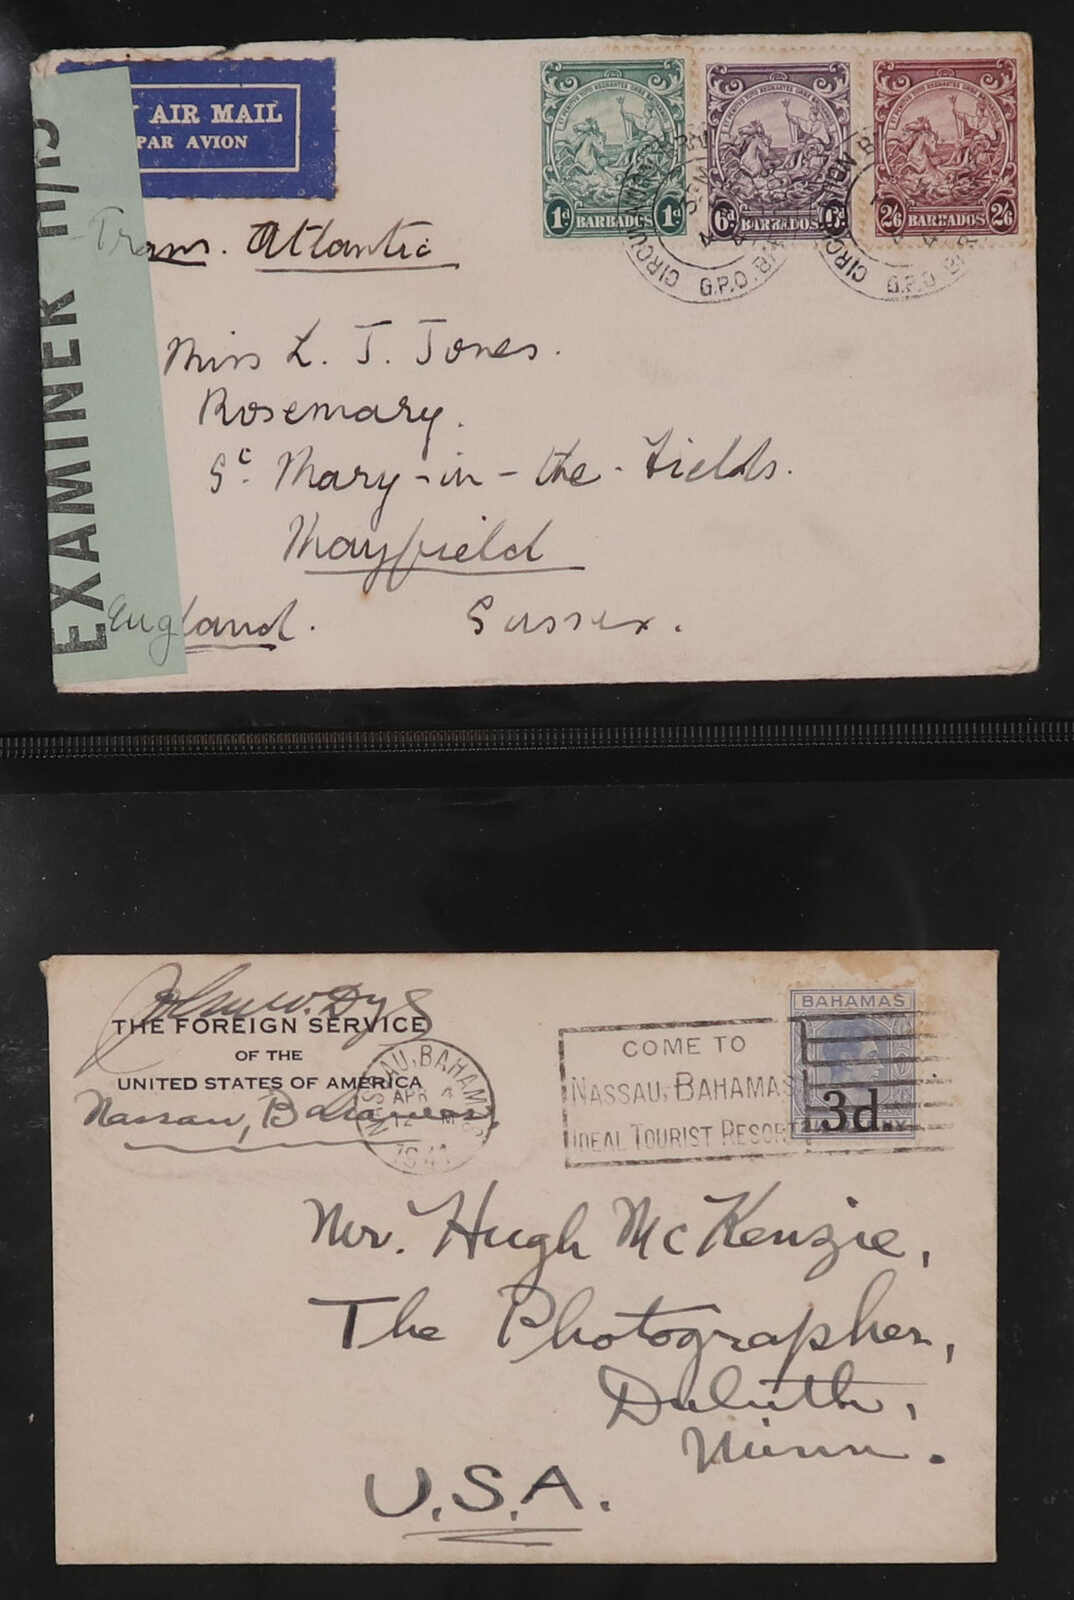 AIR MAIL
PAR AVION
EXAMINER H/15
Trans. Atlantic
1d BARBADOS 1d
6d BARBADOS 6d
2/6 BARBADOS 2/6
G.P.O.
G.P.O.
Miss L. J. Jones.
Rosemary.
St. Mary-in-the-Fields.
Mayfield
England. Sussex.
THE FOREIGN SERVICE
OF THE
UNITED STATES OF AMERICA
Nassau, Bahamas
NASSAU, BAHAMAS
APR
1941
COME TO
NASSAU, BAHAMAS
IDEAL TOURIST RESORT
BAHAMAS
3d.
Mr. Hugh McKenzie,
The Photographer,
Duluth,
Minn.
U.S.A.